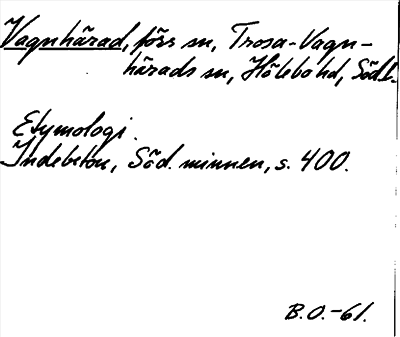 Vagnhärad, förs sn, Trosa-Vagn-
härads sn, Hölebo hd, Söd.l.
Etymologi.
Indebetou, Söd. minnen, s. 400.
B.O.-61.